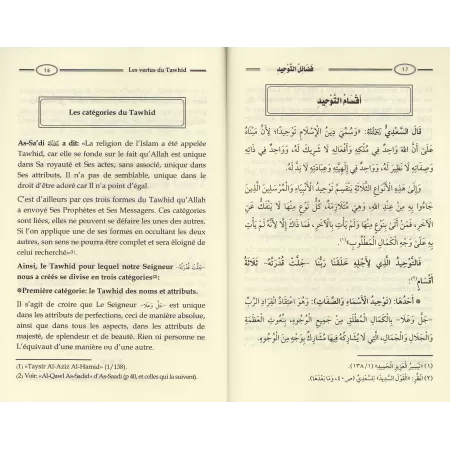 16
Les vertus du Tawhid
Les catégories du Tawhid
As-Sa'di رحمه الله a dit: «La religion de l'Islam a été appelée
Tawhid, car elle se fonde sur le fait qu'Allah est unique
dans Sa royauté et Ses actes, sans associé, unique dans
Ses attributs, Il n'a pas de semblable, unique dans le
droit d'être adoré car Il n'a point d'égal.
C'est d'ailleurs par ces trois formes du Tawhid qu'Allah
a envoyé Ses Prophètes et Ses Messagers. Ces catégories
sont liées, elles ne peuvent être dissociées l'une des autres.
Si l'on applique une de ses formes en occultant les deux
autres, son sens ne pourra être complet et sera éloigné de
celui recherché»(1).
Ainsi, le Tawhid pour lequel notre Seigneur
nous a créés se divise en trois catégories(2):
Première catégorie: le Tawhid des noms et attributs.
Il s'agit de croire que Le Seigneur est unique
dans les attributs de perfections, ceci de manière absolue,
ainsi que dans tous les aspects, dans les attributs de
majesté, de splendeur et de beauté. Rien ni personne ne
L'équivaut d'une manière ou d'une autre.
(1) «Taysir Al-Aziz Al-Hamid» (1/138).
(2) Voir: «Al-Qawl As-Sadid» d'As-Saadi (p 40, et celles qui la suivent).
فضائل التوحيد
١٧
أقسام التوحيد
قال السعدي رحمه الله: «وسمي دين الإسلام توحيدا؛ لأن مبناه
على أن الله واحد في ملكه وأفعاله لا شريك له، وواحد في ذاته
وصفاته لا نظير له، وواحد في إلهيته وعبادته لا ند له.
وإلى هذه الأنواع الثلاثة ينقسم توحيد الأنبياء والمرسلين الذين
جاءوا به من عند الله، وهي متلازمة، كل نوع منها لا ينفك عن
الآخر، فمن أتى بنوع منها ولم يأت بالآخر، فما ذاك إلا أنه لم يأت
به على وجه الكمال المطلوب»(١).
فالتوحيد الذي لأجله خلقنا ربنا -جلت قدرته- ثلاثة
أقسام(٢):
أحدها: (توحيد الأسماء والصفات): وهو اعتقاد انفراد الرب
-جل وعلا- بالكمال المطلق من جميع الوجوه، بنعوت العظمة
والجلال والجمال، التي لا يشاركه فيها مشارك بوجه من الوجوه.
(١) «تيسير العزيز الحميد» (١/١٣٨).
(٢) انظر: «القول السديد» للسعدي (ص ٤٠، وما بعدها).